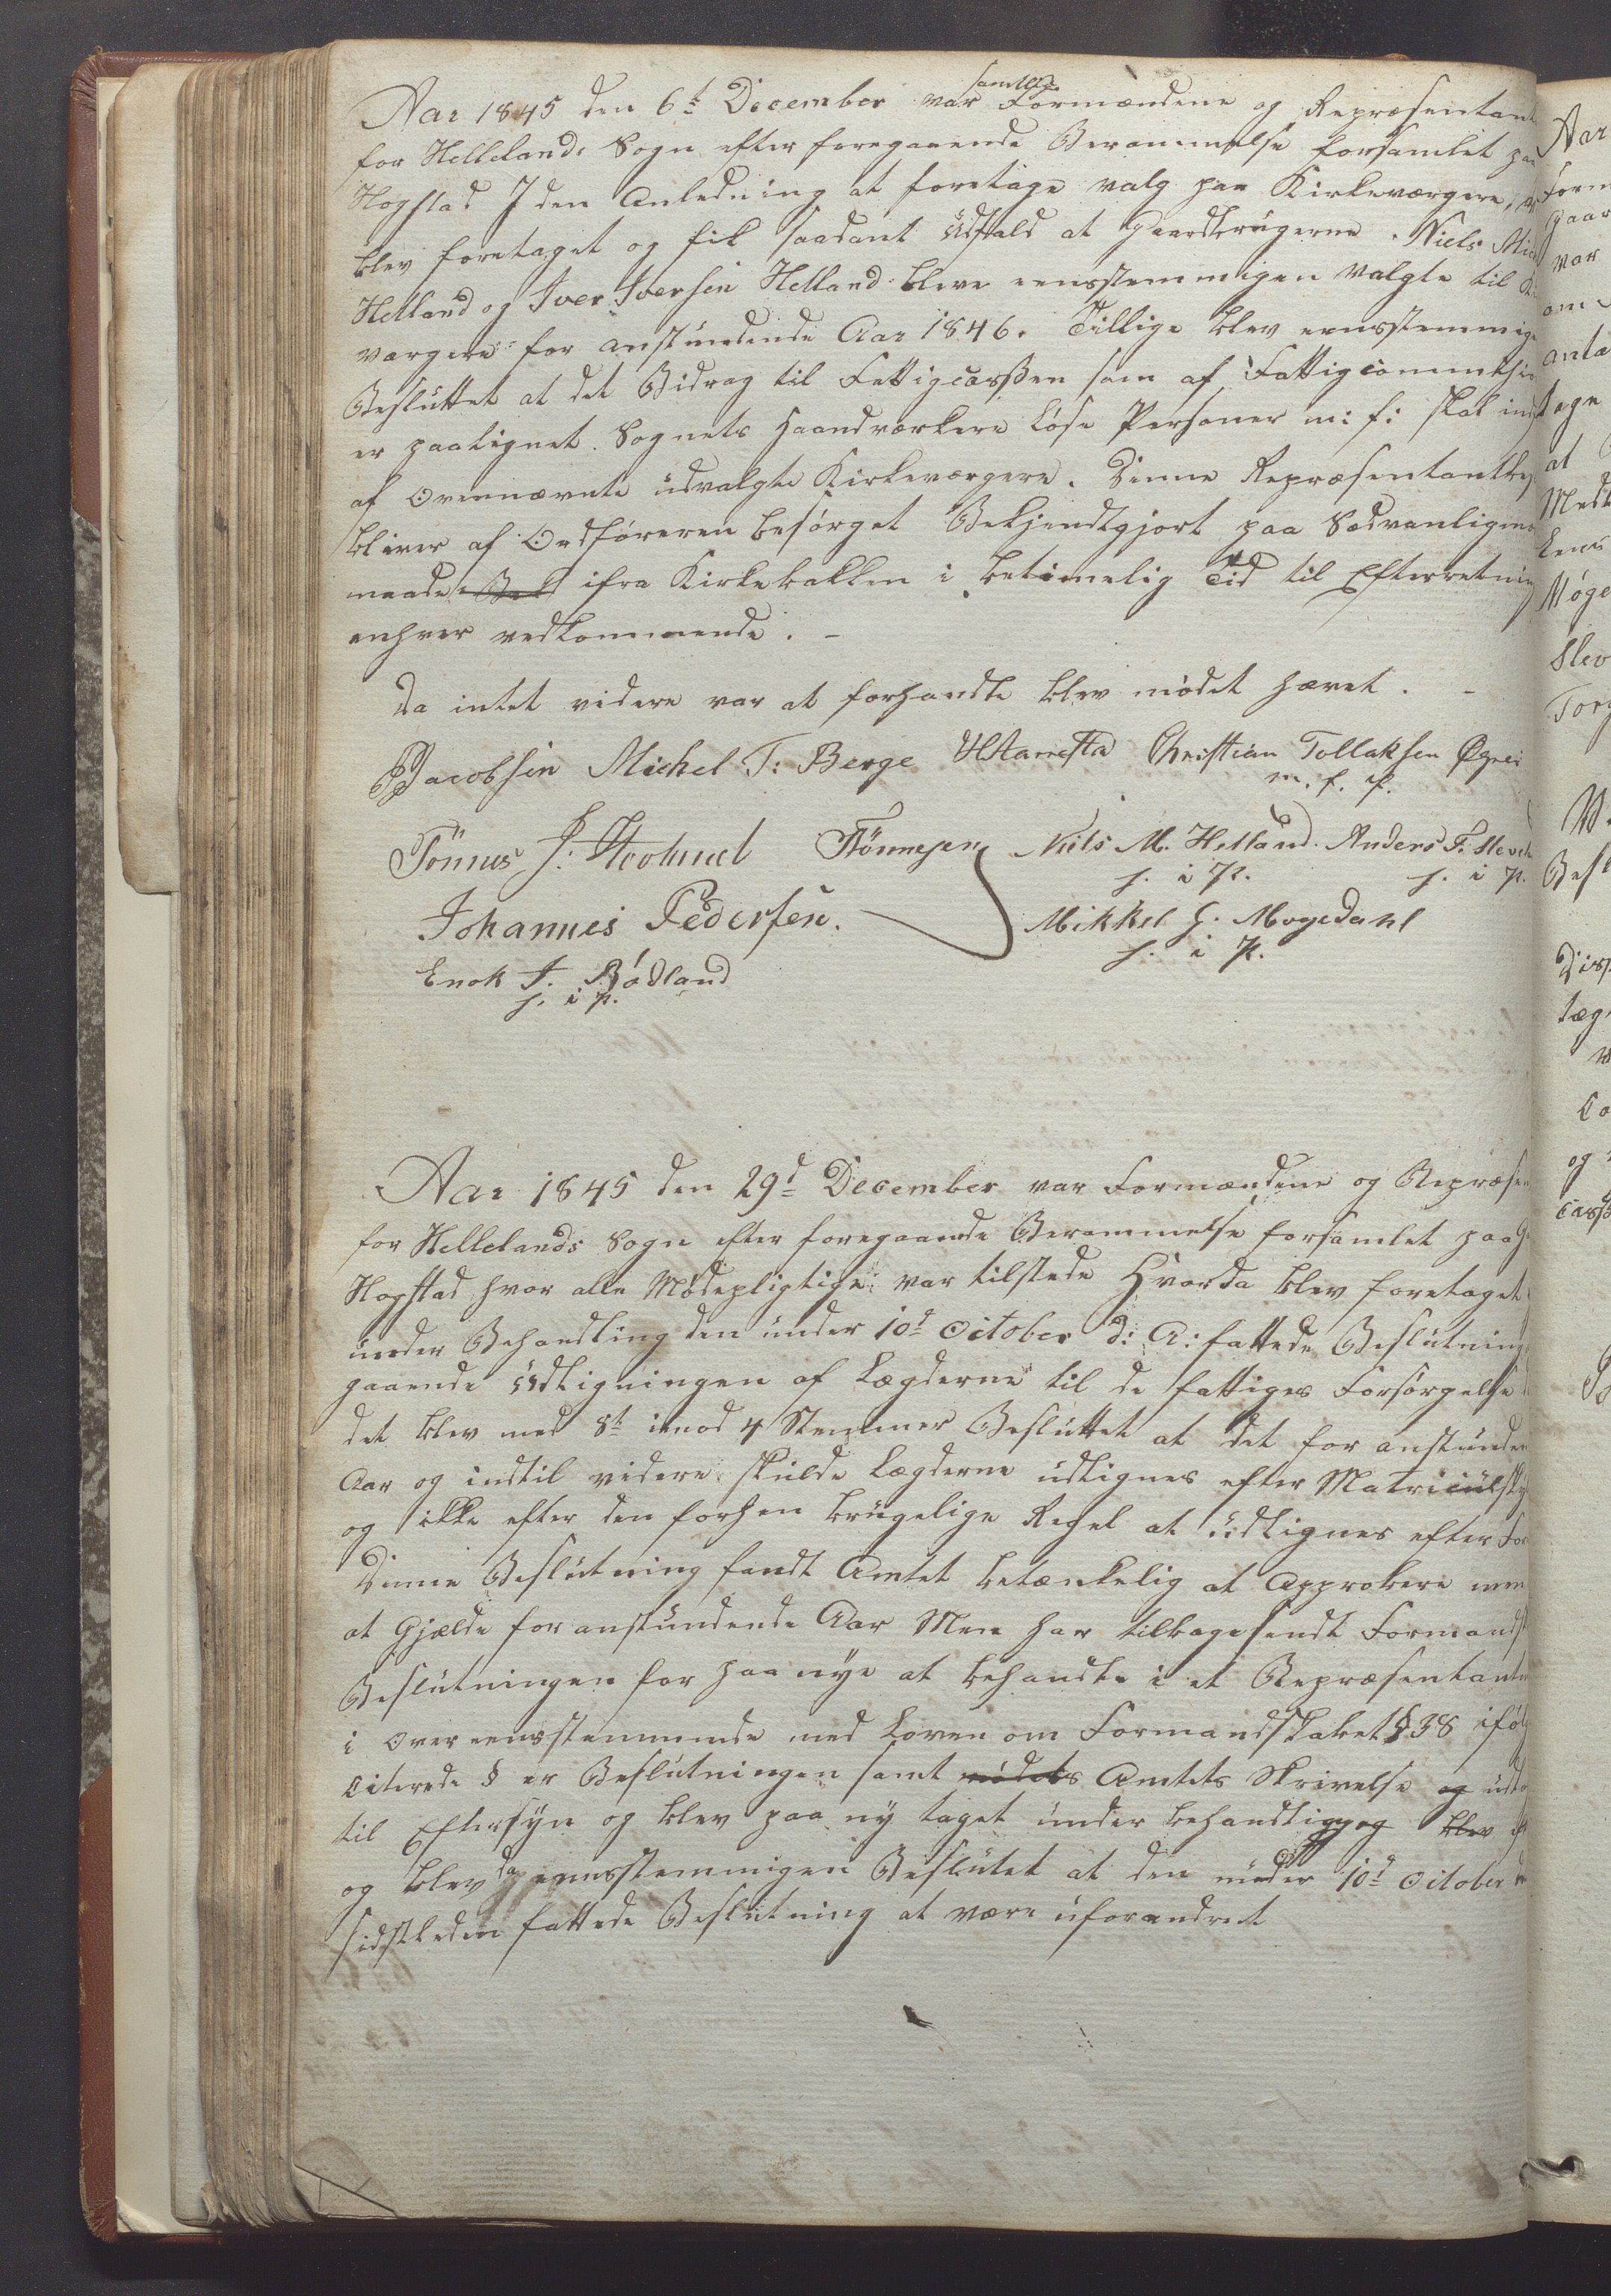 Aar 1845 den 6t December var samtlige Formændene og Repræsentant
for Hellelands Sogn efter foregaaende Berammelse forsamlet paa
Hogstad I den Anledning at foretage valg paa Kirkeværgere,
blev foretaget og fik saadant Udfald at Gaardbrugerne Niels Mich
Helland og Iver Iversen Helland bleve eensstemmigen valgte til Ki
værgere for anstundende Aar 1846. Tillige blev eensstemmige
Besluttet at det Bidrag til Fattigcasßen som af Fattigcommisio
er paalignet Sognets Haandværkere Løse Personer m: f: skal ind
af Ovennævnte udvalgte Kirkeværgere. Denne Repræsentantbes
bliver af Ordføreren besørget Bekjendtgjort paa Sædvanligen
maade Bek ifra Kirkebakken i betimelig Tid til Efterretning
enhver vedkommende. -
Da intet videre var at forhandle blev mødet hævet. -
PJacobsen Michel T: Berge Christian Tollaksen Øgrei
m. f. P.
Tönnes J: TTönnesen Niels M. Helland. Anders T. Slevel
h. i P. h. i P.
Johannes Pedersen. Mikkel H. Mogedahl
h. i P.
Enok T. Rødland
h. i P.
Aar 1845 den 29d December var Formændene og Repræsen
for Hellelands Sogn efter foregaaende Berammelse forsamlet paa G
Hogstad hvor alle Mødepligtige var tilstede Hvorda blev foretaget
under Behandling den under 10d October d: A: fattede Beslutning
gaaende Udligningen af Lægderne til de fattiges Forsørgelse
det blev med 8te imod 4 Stemmer Besluttet at det for anstunden
Aar og indtil videre skulde Lægderne udlignes efter Matriculsky
og ikke efter den forhen brugelige Regel at udlignes efter For
Denne Beslutning fandt Amtet betænkelig at Approbere
at Gjælde for anstundende Aar Men har tilbagesendt Formands
Beslutningen for paa nye at behandle i et Repræsentant
i Overeensstemmende med Loven om Formandskabet § 38 iføl
Citerede § er Beslutningen samt mødets Amtets Skrivelse og udl
til Eftersyn og blev paa ny taget under behandling og blev
og blev da eensstemmigen Beslutet at den under 10d October
sidstleden fattede Beslutning at være uforandret
Aar
Form
Gaar
var
om
anta
tage
at
Medl
Lens
Møge
Slev
Torg
Besl
Disp
læg
Co
og
Cassß